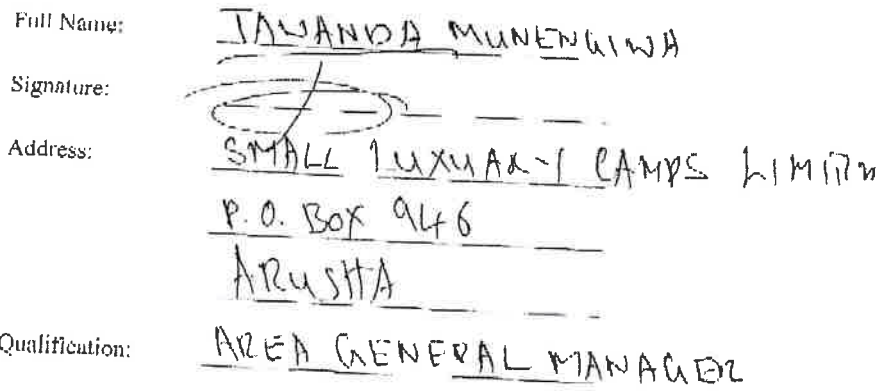 Full Name: TAWANDA MUNENGIWA
Signature:
Address: SMALL LUXUARY CAMPS LIMITED
P.O. BOX 946
ARUSHA
Qualification: AREA GENERAL MANAGER